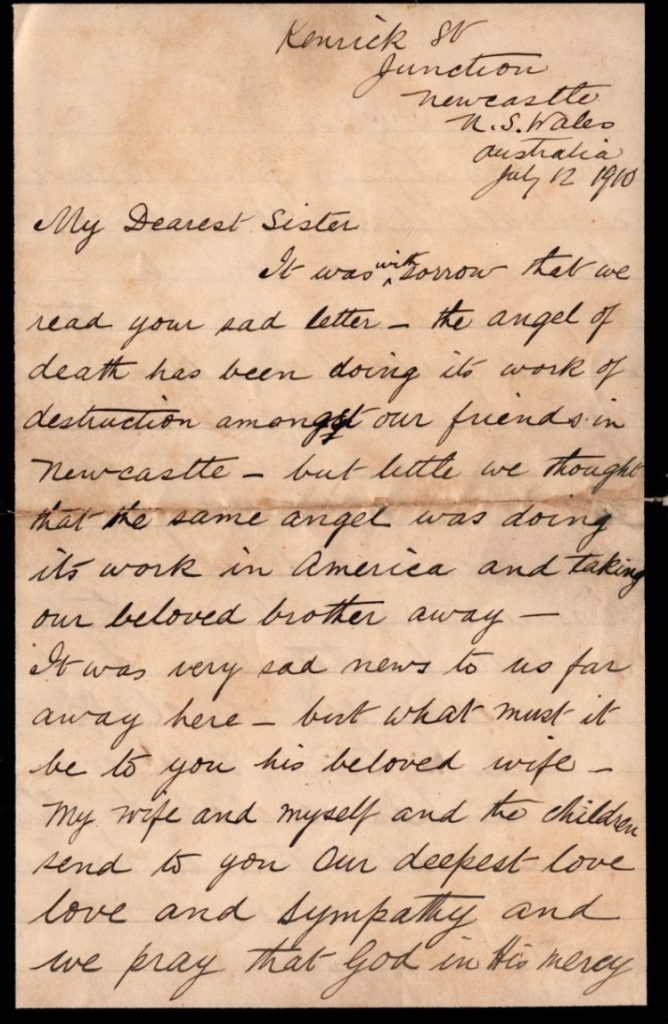 Kenrick St
Junction
Newcastle
N. S. Wales
Australia
July 12 1910
My Dearest Sister
It was with sorrow that we
read your sad letter – the angel of
death has been doing its work of
destruction amongst our friends in
Newcastle – but little we thought
that the same angel was doing
its work in America and taking
our beloved brother away –
It was very sad news to us far
away here – but what must it
be to you his beloved wife –
My wife and myself and the children
send to you our deepest love
love and sympathy and
we pray that God in His mercy